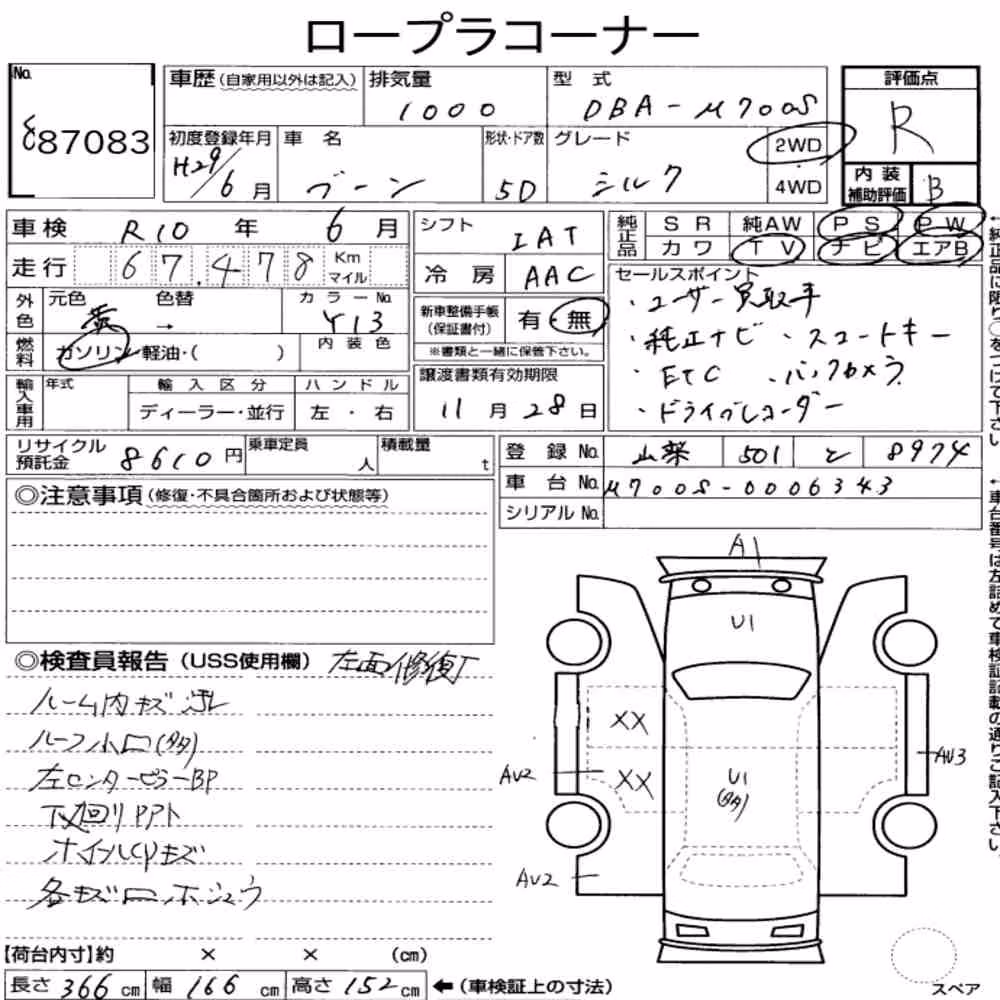 ロープラコーナー
No. 87083
車歴 (自家用以外は記入)
排気量 1000
型式 DBA-M700S
評価点 R
内装補助評価 B
初度登録年月 H29/6月
車名 ブーン
形状・ドア数 5D
グレード シルク
2WD
4WD
車検 R10年 6月
走行 67,478 Km マイル
外色 元色 黄 色替 → カラーNo. Y13
燃料 ガソリン・軽油・( ) 内装色
輸入車用 年式 輸入区分 ディーラー・並行 ハンドル 左・右
リサイクル預託金 8610円 乗車定員 人 積載量 t
シフト IAT
冷房 AAC
新車整備手帳(保証書付) 有 無
※書類と一緒に保管下さい。
譲渡書類有効期限
11月28日
純正品 SR 純AW PS PW
カワ TV ナビ エアB
セールスポイント
・ユーザー買取車
・純正ナビ ・スマートキー
・ETC ・バックカメラ
・ドライブレコーダー
登録No. 山梨 501 と 8974
車台No. M700S-0006343
シリアルNo.
←純正品に限り○をつけて下さい
←車台番号は左詰めで車検証記載の通りご記入下さい。
◎注意事項 (修復・不具合箇所および状態等)
◎検査員報告 (USS使用欄) 左面修復
ルーム内キズ 汚レ
ルーフ小凹(タタ)
左センターピラーBP
下廻り
ホイールCPキズ
各キズ凹
A1
U1
XX
XX
AU2
U1
(タタ)
AU3
AU2
【荷台内寸】約 × × (cm)
長さ 366 cm 幅 166 cm 高さ 152 cm ←(車検証上の寸法)
スペア